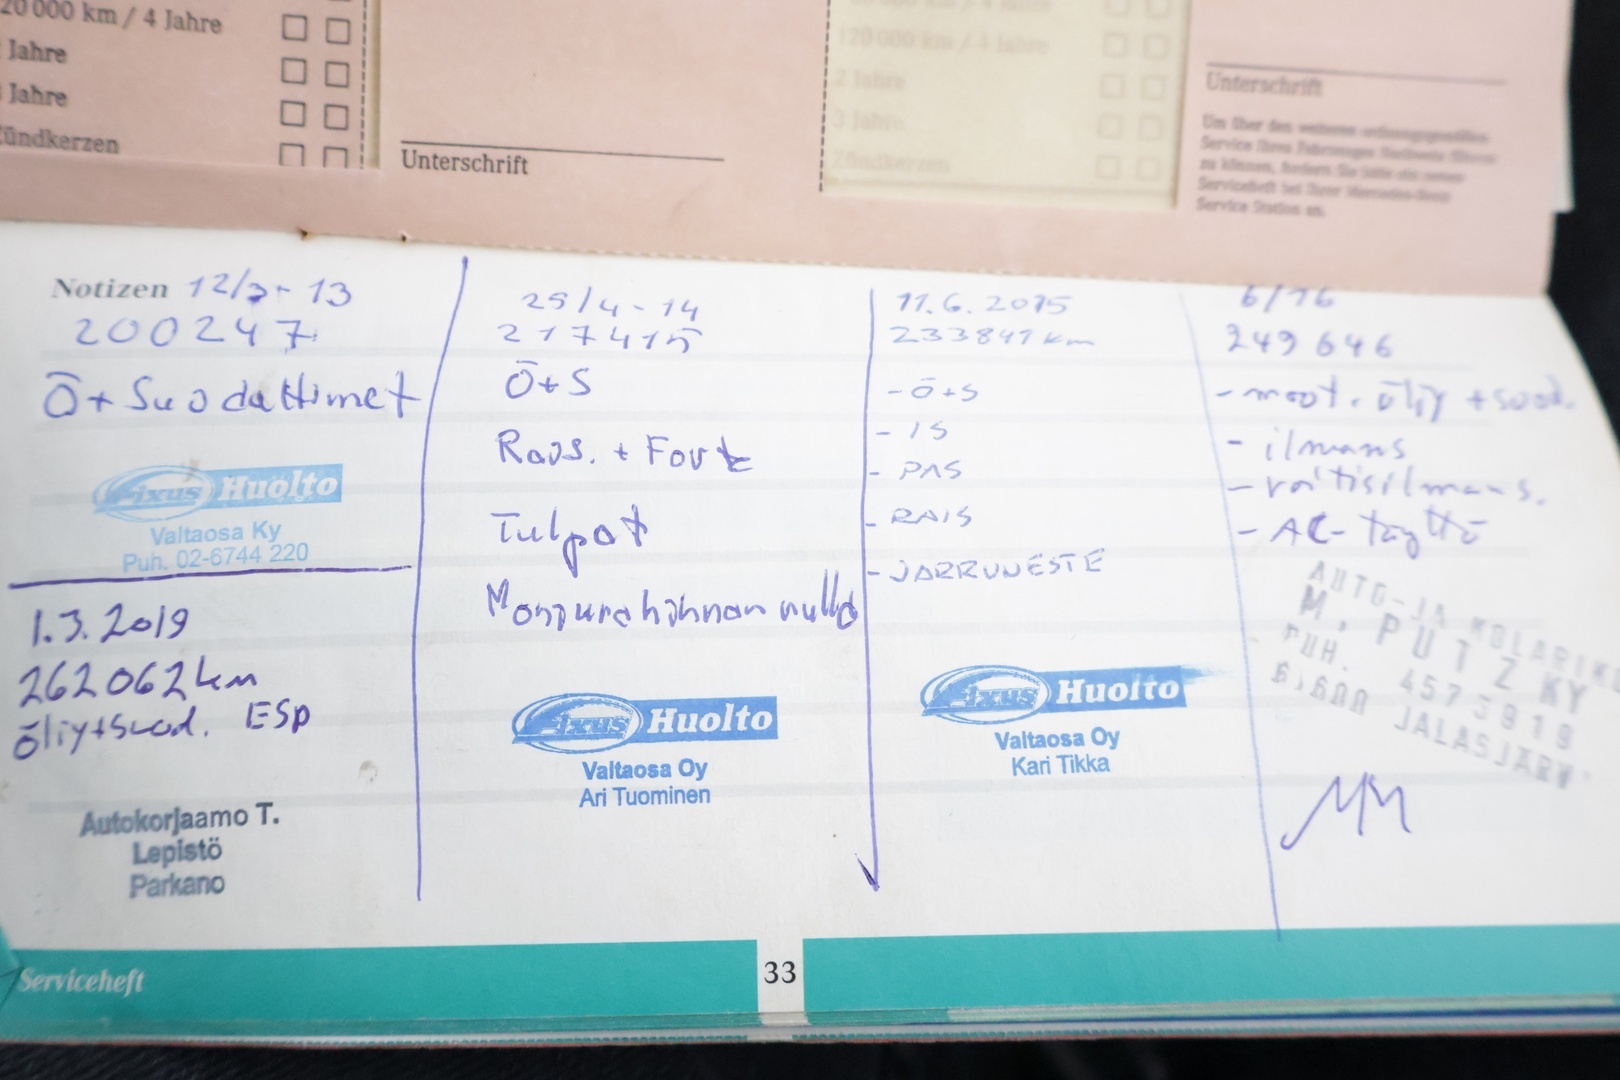 20 000 km / 4 Jahre
Jahre
Jahre
Zündkerzen
Unterschrift
120 000 km / 4 Jahre
2 Jahre
3 Jahre
Zündkerzen
Unterschrift
Um über den weiteren ordnungsgemäßen
Service Ihres Fahrzeuges Nachweis führen
zu können, fordern Sie bitte ein neues
Serviceheft bei Ihrer Mercedes-Benz
Service Station an.
Notizen 12/3-13
200247
Ö+Suodattimet
Fixus Huolto
Valtaosa Ky
Puh. 02-6744 220
1.3.2019
262062km
öljy+suod. ESP
Autokorjaamo T.
Lepistö
Parkano
25/4-14
217415
Ö+S
Rais. + Forte
Tulpat
Fixus Huolto
Valtaosa Oy
Ari Tuominen
11.6.2015
233841 km
- Ö+S
- IS
- PAS
- RAIS
- JARRUNESTE
Fixus Huolto
Valtaosa Oy
Kari Tikka
6/16
249646
- moot. öljy + suod.
- ilmans
- raitisilmans.
- AC-täyttö
AUTO-JA KOLARIKO
M. PUTZ KY
PUH. 4573919
61600 JALASJÄRVI
Serviceheft
33